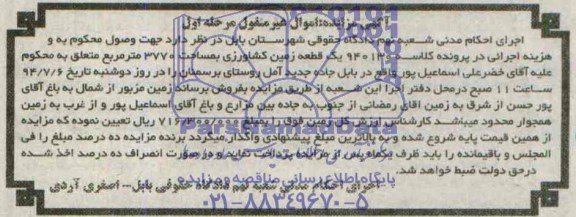 آگهی مزایده اموال غیر منقول مرحله اول
اجرای احکام مدنی شعبه نهم دادگاه حقوقی شهرستان بابل در نظر دارد جهت وصول محکوم به و
هزینه اجرائی در پرونده کلاسه یک قطعه زمین کشاورزی بمساحت ۳۷۷۰ مترمربع متعلق به محکوم
علیه آقای خضرعلی اسماعیل پور واقع در بابل جاده جدید آمل روستای برسمنان را در روز دوشنبه تاریخ ۹۴/۷/۶
ساعت ۱۱ صبح درمحل دفتر اجرا این شعبه از طریق مزایده بفروش برساند زمین مزبور از شمال به باغ آقای
پور حسن از شرق به زمین اقای رمضانی از جنوب به جاده بین مزارع و باغ آقای اسماعیل پور و از غرب به زمین
همجوار محدود میباشد کارشناس ارزش کل زمین فوق را بمبلغ ریال تعیین نموده که مزایده
از همین قیمت پایه شروع شده و به بالاترین مبلغ پیشنهادی واگذار میگردد برنده مزایده ده درصد مبلغ را فی
المجلس و باقیمانده را باید ظرف یکماه پس از مزایده پرداخت نماید و در صورت انصراف ده درصد اخذ شده
درحق دولت ضبط خواهد شد.
اجرای احکام مدنی شعبه نهم دادگاه حقوقی بابل... اصغری آزدی
ParsNamadData
پایگاه اطلاع رسانی مناقصه و مزایده
۰۲۱-۸۸۳۴۹۶۷۰-۵